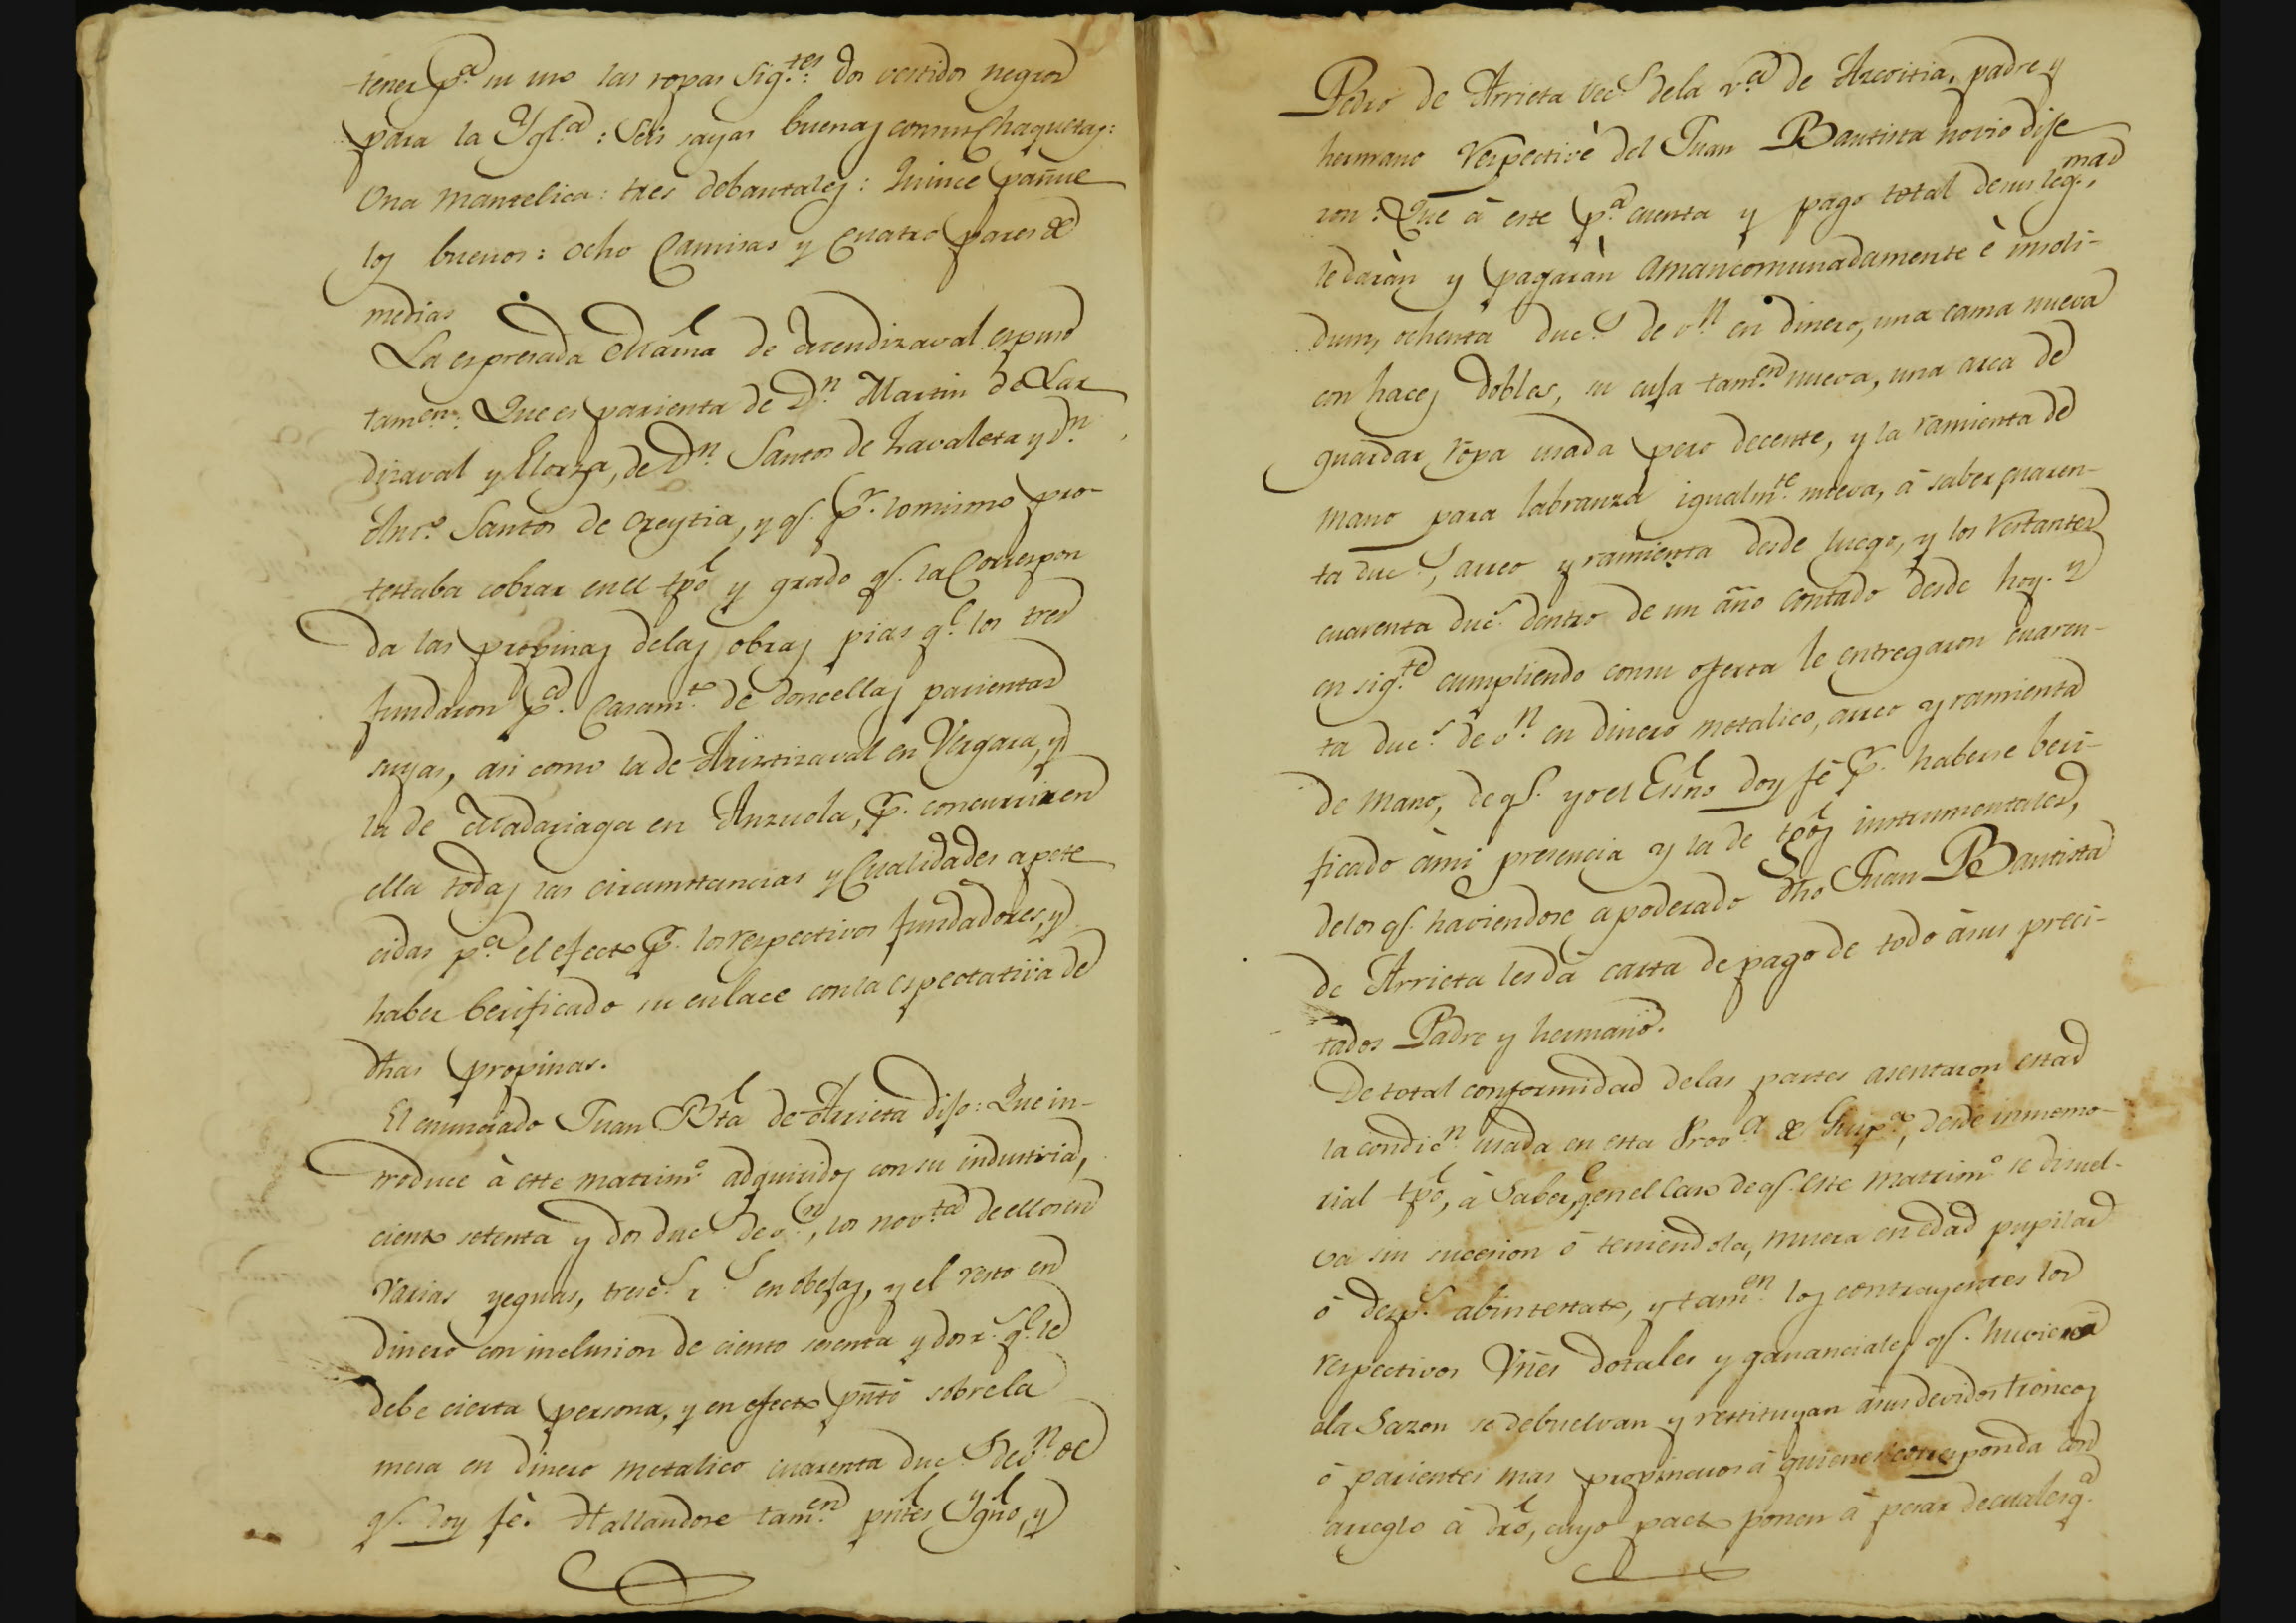 tener p.ª su uso las ropas sig.tes: dos vestidos negros
para la Ygl.ª: Seis sayas buenas con sus chaquetas:
Una mantelica: tres debantales: Quince pañue
los buenos: ocho Camisas y Cuatro pares de
medias
La espresada María de Arendizaval espuso
tamen: Que es parienta de D.n Martin de Lar
dizaval y Elorza, de D.n Santos de Zavaleta y D.n
Ant.o Santos de Oreytia, y q.e p.r lo mismo pro-
testaba cobrar en el tpo y grado q.e la Correspon
da las propinas de las obras pias q.e los tres
fundaron p.a Casam.to de doncellas parientas
suyas, asi como la de Ariztizaval en Vergara, y
la de Madariaga en Anzuola, p.r concurrir en
ella todas las circunstancias y Cualidades apete
cidas p.ª el efecto p.r los respectivos fundadores, y
haber berificado su enlace con la espectativa de
dhas propinas.
El enunciado Juan Bta de Arrieta dijo: Que in-
troduce à este matrim.o adquiridos con su industria,
ciento setenta y dos duc.s de v.n, los nov.ta de ellos en
varias yeguas, tresc.s r.s en obejas, y el resto en
dinero con inclusion de ciento sesenta y dos r.s q.e le
debe cierta persona, y en efecto pntó sobre la
mesa en dinero metalico cuarenta duc.s de v.n de
q.e doy fè. Hallandose tam.en pntes Ygno, y
Pedro de Arrieta vec.s de la v.ª de Azcoitia, padre y
hermano respectivè del Juan Bautista novio dije
ron: Que à este p.ª cuenta y pago total de sus legmas,
le daràn y pagaràn amancomunadamente è insoli-
dum, ochenta duc.s de v.n en dinero, una cama nueva
con haces dobles, su cuja tam.en nueva, una arca de
guardar ropa usada pero decente, y la ramienta de
mano para labranza igualm.te nueva, à saber cuaren-
ta duc.s, arreo y ramienta desde luego, y los restantes
cuarenta duc.s dentro de un año contado desde hoy. Y
en sig.te cumpliendo con su oferta le entregaron cuaren-
ta duc.s de v.n en dinero metalico, arreo y ramienta
de mano, de q.e yo el Esno doy fè p.r haberse beri-
ficado à mi presencia y la de tgos instrumentales,
de los q.e haviendose apoderado dho Juan Bautista
de Arrieta les dà carta de pago de todo à sus preci-
tados Padre y hermano.
De total conformidad de las partes asentaron esta
la condic.n usada en esta Prov.ª de Guip.ª, desde inmemo-
rial tpo, à Saber, q.e en el Caso de q.e este matrim.o se disuel-
va sin sucesion ó teniendola, muera en edad pupilar
ó desp.s abintestato, y tam.en los contrayentes los
respectivos Vnes dotales y gananciales q.e huviera
a la Sazon se debuelvan y restituyan à sus devidos troncos
ó parientes mas propincuos à quienes corresponda con
arreglo à dro, cuyo pacto ponen à pesar de cualesq.ª